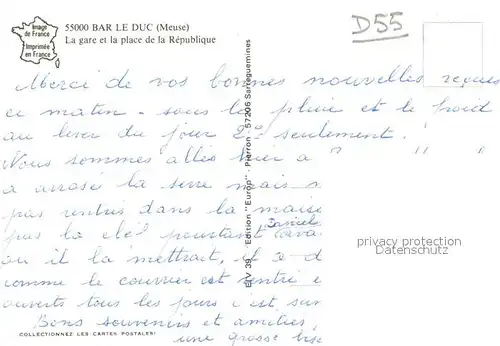 Image
de France
Imprimée
en France
55000 BAR LE DUC (Meuse)
La gare et la place de la République
D55
Merci de vos bonnes nouvelles reçues
ce matin - sous la pluie et le froid
au lever du jour 2° seulement !
Nous sommes allés hier a ? " "
a arrosé la serre mais
pas rentrés dans la maiso
pas la clef pourtant Daniel avai
ou il la mettrait, il a d
comme le courrier est rentré e
ouverts tous les jours c'est sur
Bons souvenirs et amitiés
une grosse bise
ELV 39 Edition "Europ" - Pierron - 57206 Sarreguemines
COLLECTIONNEZ LES CARTES POSTALES!
privacy protection
Datenschutz